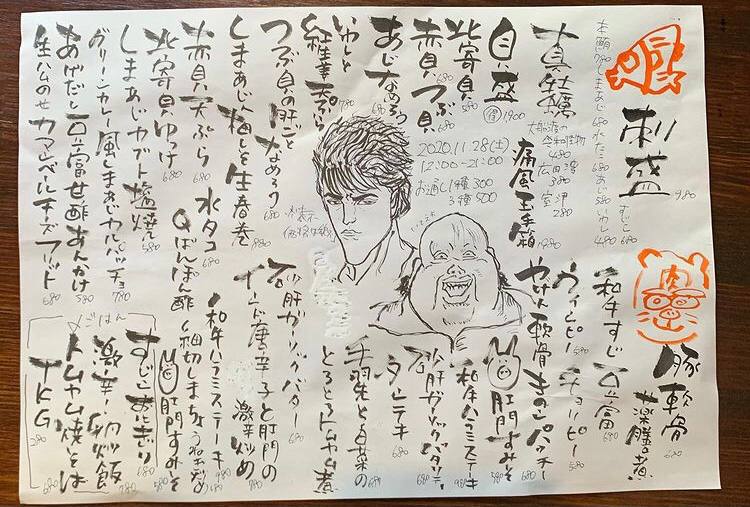 刺盛 980
本鮪 780 しまあじ 680 水たこ 680 あじ 580 いわし 480 すじこ 680
真牡蠣
大船渡
480
広田湾 380
室津 280
痛風玉手箱
貝盛 1900
北寄貝 580
赤貝 680 つぶ貝 680
あじなめろう 680
いわしと
紅生姜天ぷら 780
つぶ貝の肝ごとなめろう 680
しまあじと梅しそ生春巻 880
赤貝天ぷら 680
水タコ
北寄貝ゆっけ 680
しまあじカブト塩焼 580
グリーンカレー風しまあじカルパッチョ 780
あげだし豆富甘酢あんかけ 580
生ハムのせカマンベールチーズフリット 680
2020.11.28(土)
12:00~21:00
お通し1種300
3種500
肉
豚軟骨
薬膳煮 680
和牛すじ豆富 690
ウインピー 580 チョリピー 580
やげん軟骨ときのこパッチー
肛門すみそ
和牛ハラミステーキ 980
砂肝ガーリックバター
タンテキ 680
手羽先と白菜の
とろとろトムヤム煮
砂肝ガーリックバター 680
インド唐辛子と肛門の
激辛炒め 780
ぽんぽん酢
和牛ハラミステーキ
細切しまちょう
肛門すみそ
ごはん
すじこおにぎり 680
激辛!炒飯 780
トムヤム焼そば 680
TKG 280